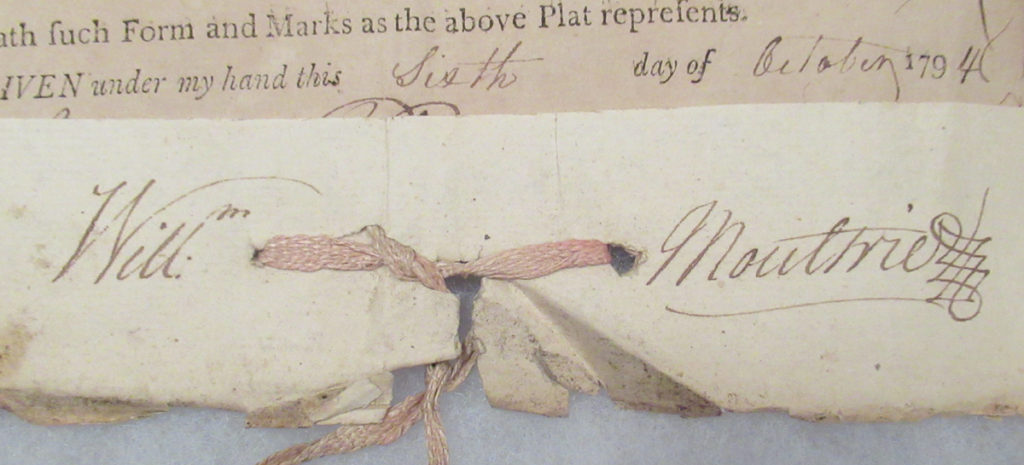 ath ſuch Form and Marks as the above Plat repreſents.
IVEN under my hand this Sixth day of October 1794
Will.m Moultrie